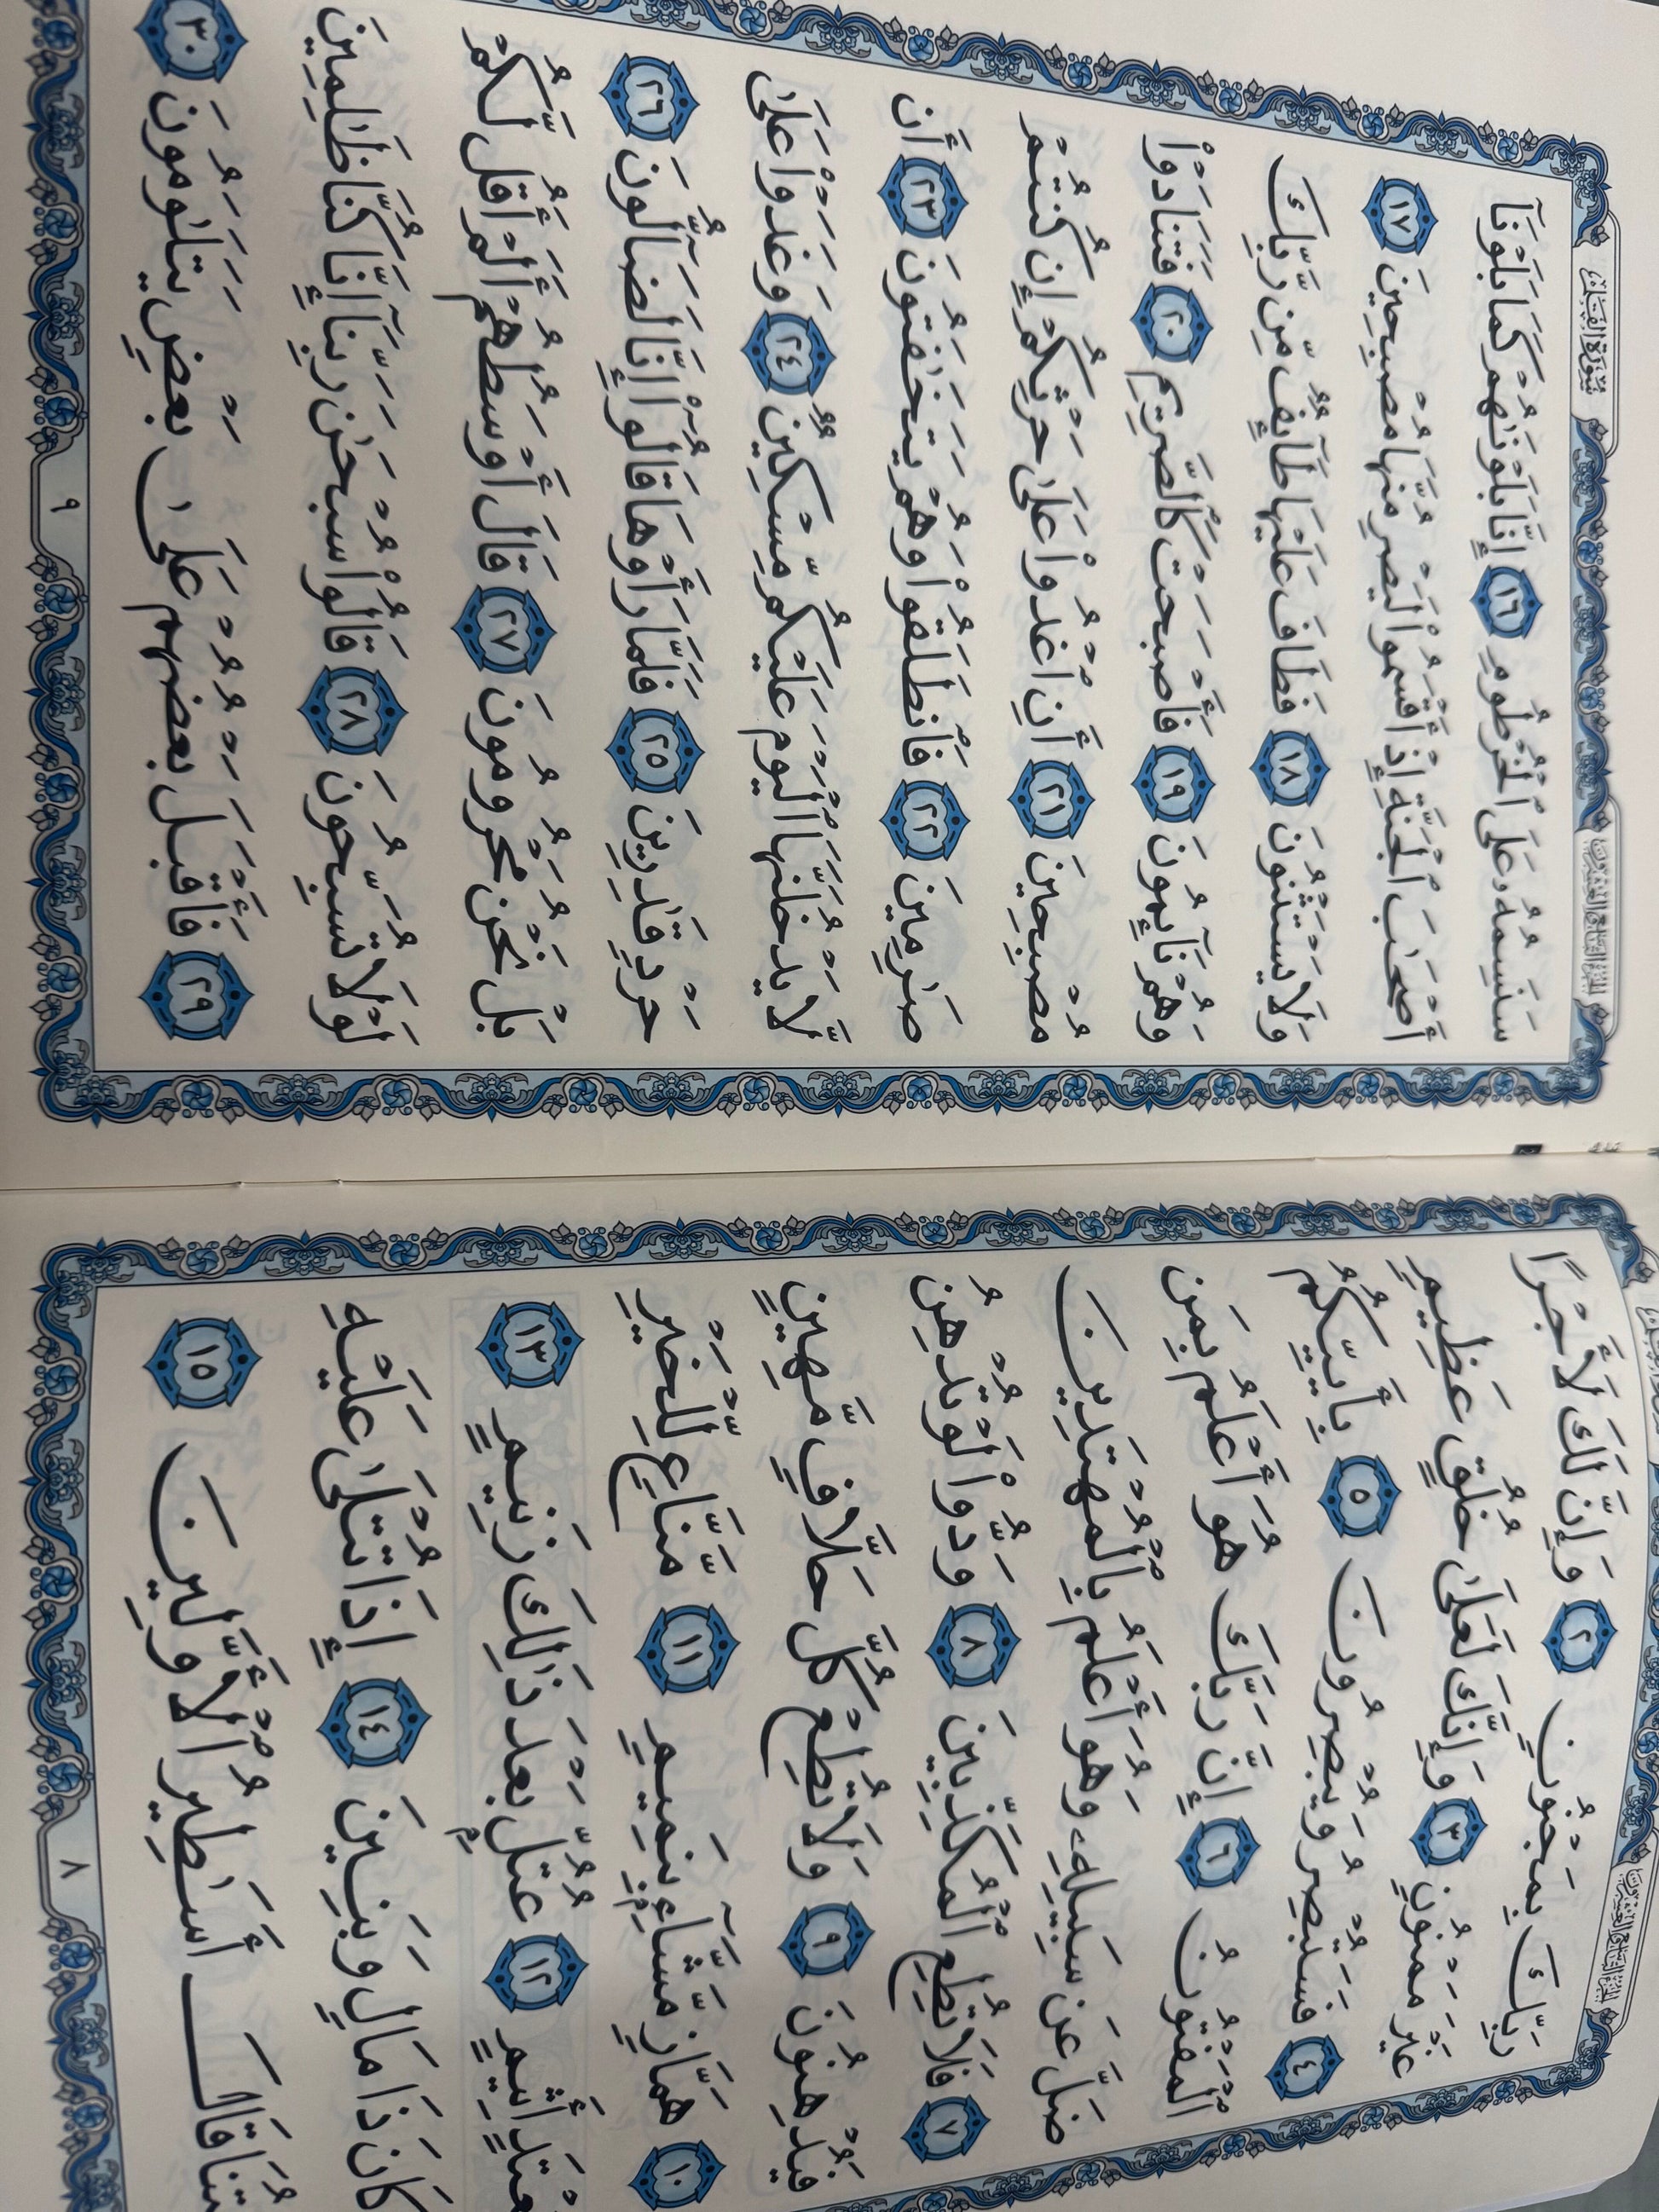 الجزء التاسع والعشرون
رَبِّكَ بِمَجْنُونٍ ٢ وَإِنَّ لَكَ لَأَجْرًا
غَيْرَ مَمْنُونٍ ٣ وَإِنَّكَ لَعَلَىٰ خُلُقٍ عَظِيمٍ
٤ فَسَتُبْصِرُ وَيُبْصِرُونَ ٥ بِأَييِّكُمُ
ٱلْمَفْتُونُ ٦ إِنَّ رَبَّكَ هُوَ أَعْلَمُ بِمَن
ضَلَّ عَن سَبِيلِهِۦ وَهُوَ أَعْلَمُ بِٱلْمُهْتَدِينَ
٧ فَلَا تُطِعِ ٱلْمُكَذِّبِينَ ٨ وَدُّوا۟ لَوْ تُدْهِنُ
فَيُدْهِنُونَ ٩ وَلَا تُطِعْ كُلَّ حَلَّافٍ مَّهِينٍ
١٠ هَمَّازٍ مَّشَّآءٍۭ بِنَمِيمٍ ١١ مَّنَّاعٍ لِّلْخَيْرِ
مُعْتَدٍ أَثِيمٍ ١٢ عُتُلٍّۭ بَعْدَ ذَٰلِكَ زَنِيمٍ ١٣
كَانَ ذَا مَالٍ وَبَنِينَ ١٤ إِذَا تُتْلَىٰ عَلَيْهِ
قَالَ أَسَٰطِيرُ ٱلْأَوَّلِينَ ١٥
٨
الجزء التاسع والعشرون
سورة القلم
سَنَسِمُهُۥ عَلَى ٱلْخُرْطُومِ ١٦ إِنَّا بَلَوْنَٰهُمْ كَمَا بَلَوْنَآ
أَصْحَٰبَ ٱلْجَنَّةِ إِذْ أَقْسَمُوا۟ لَيَصْرِمُنَّهَا مُصْبِحِينَ ١٧
وَلَا يَسْتَثْنُونَ ١٨ فَطَافَ عَلَيْهَا طَآئِفٌ مِّن رَّبِّكَ
وَهُمْ نَآئِمُونَ ١٩ فَأَصْبَحَتْ كَٱلصَّرِيمِ ٢٠ فَتَنَادَوْا۟
مُصْبِحِينَ ٢١ أَنِ ٱغْدُوا۟ عَلَىٰ حَرْثِكُمْ إِن كُنتُمْ
صَٰرِمِينَ ٢٢ فَٱنطَلَقُوا۟ وَهُمْ يَتَخَٰفَتُونَ ٢٣ أَن
لَّا يَدْخُلَنَّهَا ٱلْيَوْمَ عَلَيْكُم مِّسْكِينٌ ٢٤ وَغَدَوْا۟ عَلَىٰ
حَرْدٍ قَٰدِرِينَ ٢٥ فَلَمَّا رَأَوْهَا قَالُوٓا۟ إِنَّا لَضَآلُّونَ ٢٦
بَلْ نَحْنُ مَحْرُومُونَ ٢٧ قَالَ أَوْسَطُهُمْ أَلَمْ أَقُل لَّكُمْ
لَوْلَا تُسَبِّحُونَ ٢٨ قَالُوا۟ سُبْحَٰنَ رَبِّنَآ إِنَّا كُنَّا ظَٰلِمِينَ
٢٩ فَأَقْبَلَ بَعْضُهُمْ عَلَىٰ بَعْضٍ يَتَلَٰوَمُونَ ٣٠
٩